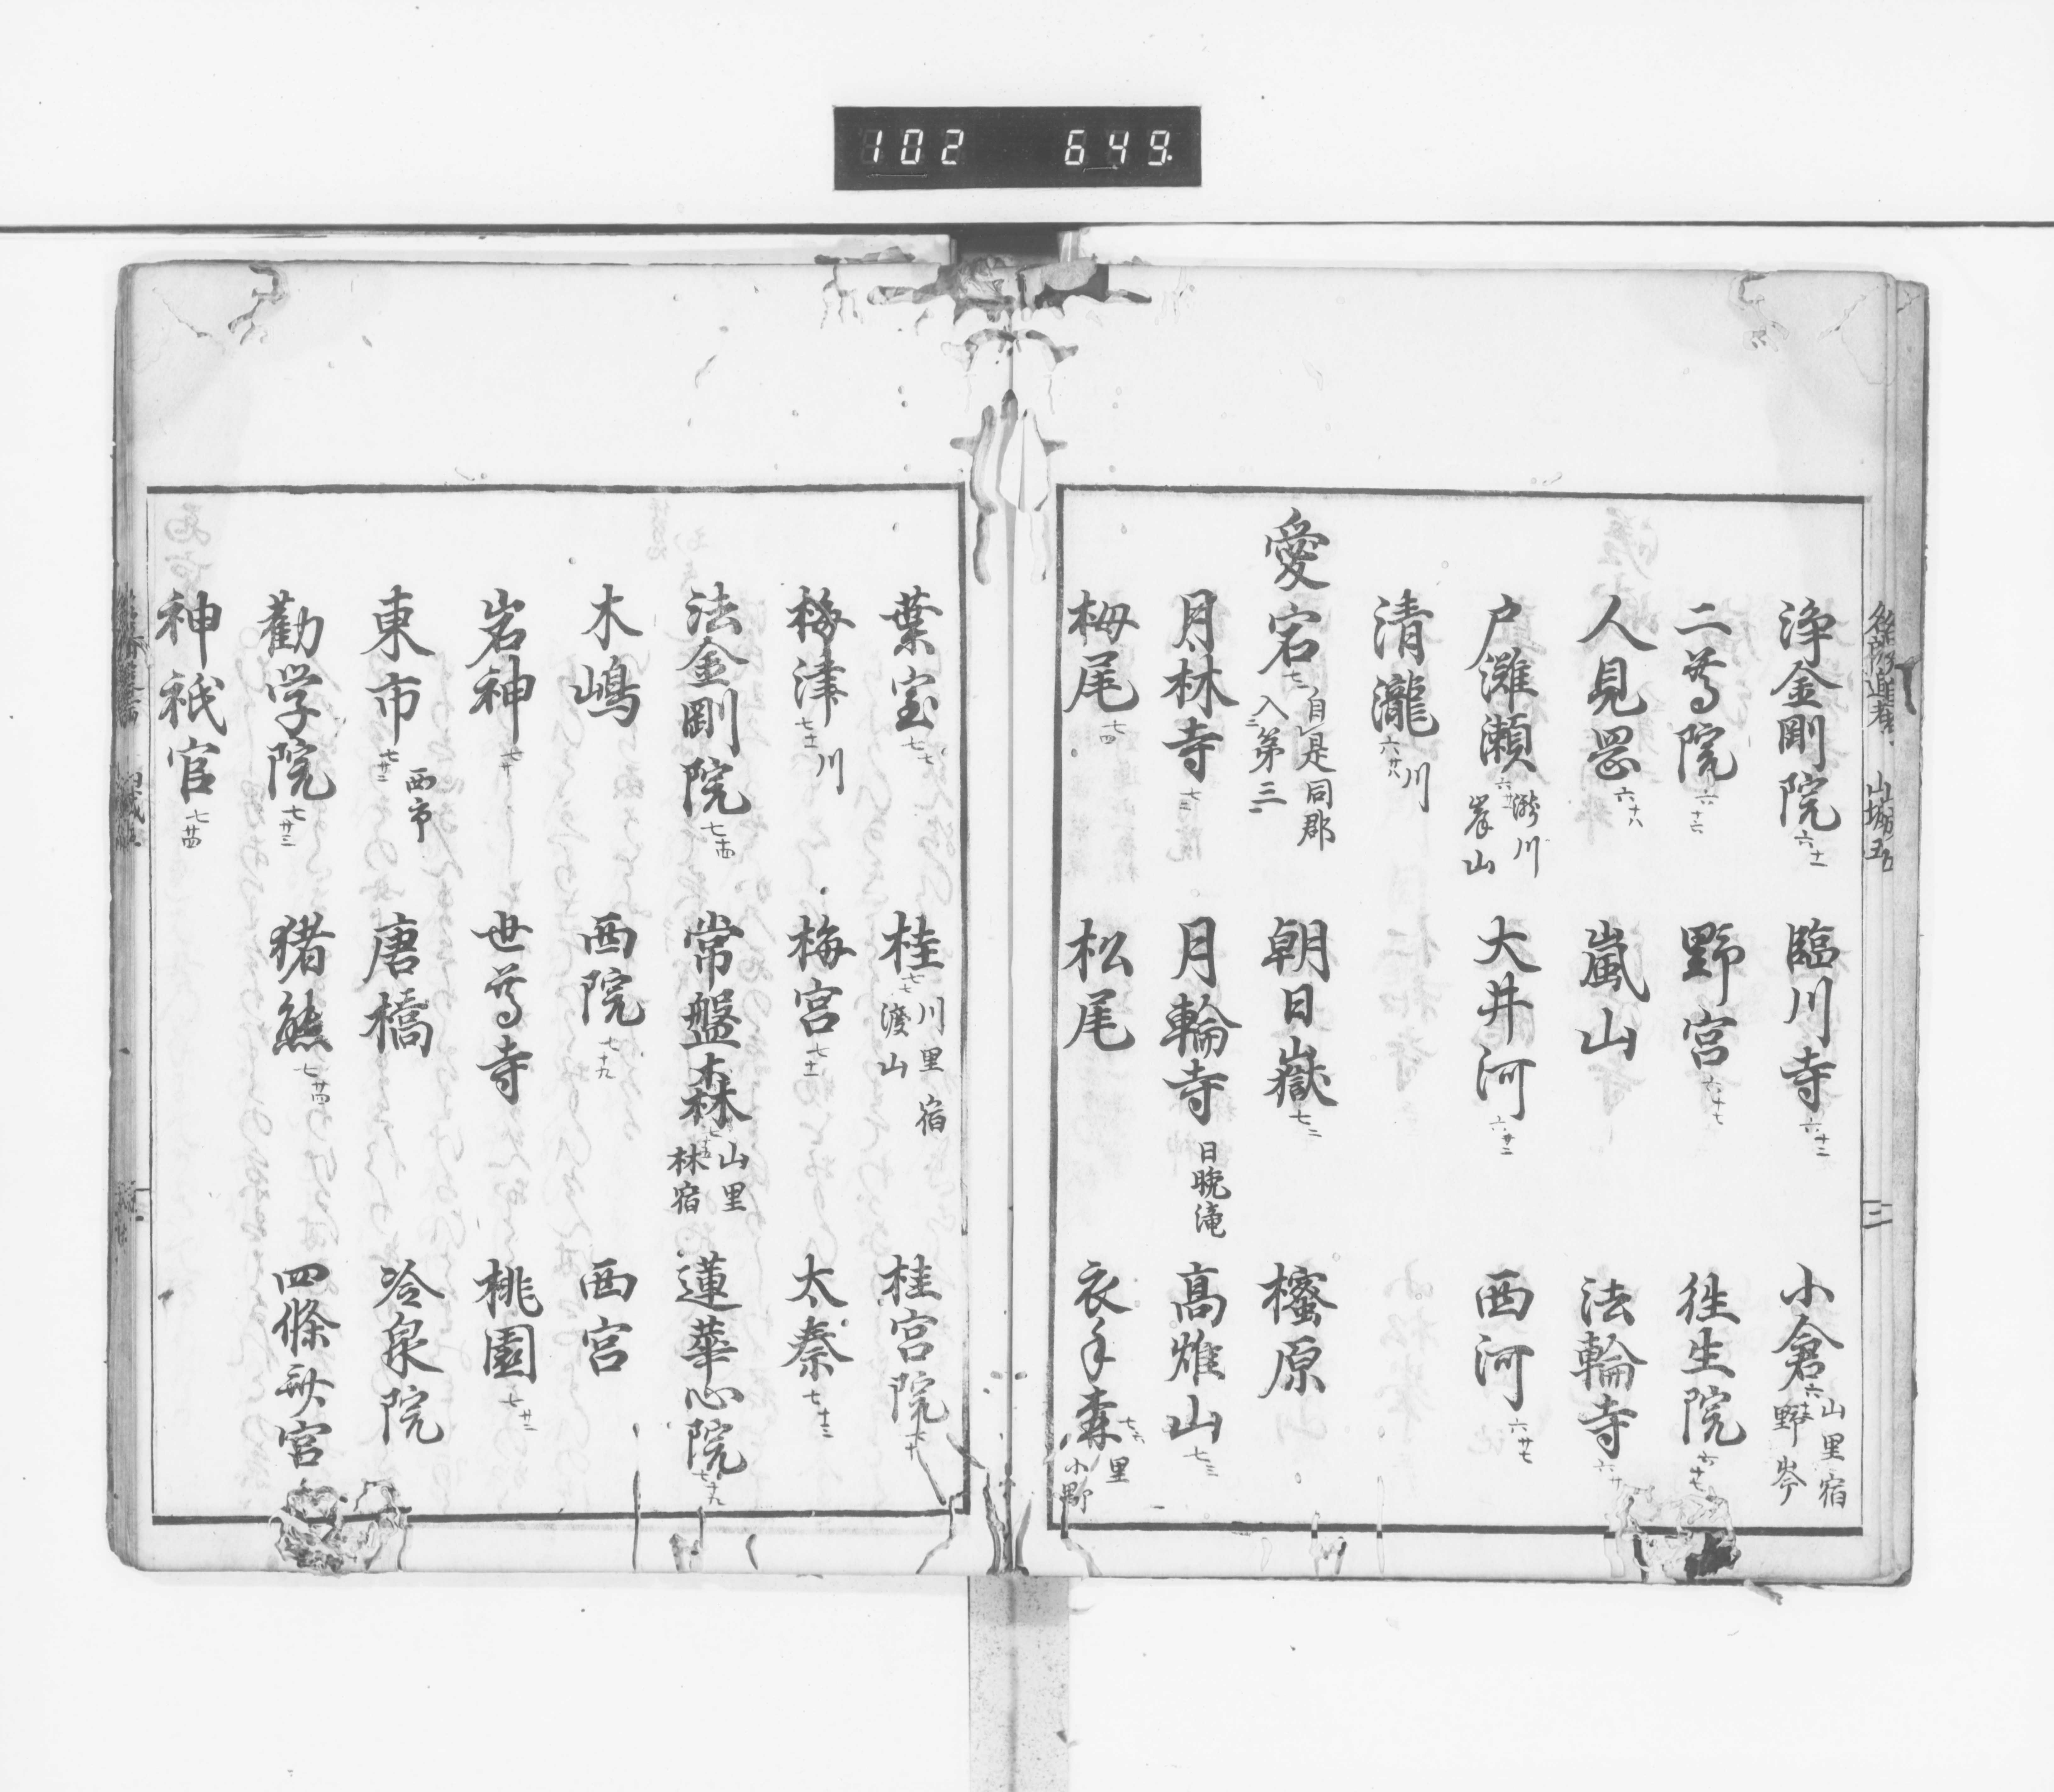 102 649
浄金剛院 六十一 臨川寺 六十二 小倉 六十三 山 里 宿 野 岑
二尊院 六十六 野宮 六十七 往生院 六十七
人見岡 六十八 嵐山 法輪寺
戸灘瀬 瀧川 岸山 大井河 六廿二 西河 六廿七
清瀧 六廿八 川
愛宕 七二 自是同郡入第三 朝日嶽 七二 樒原
月林寺 七三 月輪寺 日晩滝 高雄山 七三
栂尾 七四 松尾 衣手森 七六 里 小野
葉室 七七 桂 七七 川 里 宿 渡 山 桂宮院 七十
梅津 七十一 川 梅宮 七十一 太秦 七十三
法金剛院 七十四 常盤森 山 里 林 宿 蓮華心院 七十九
木嶋 西院 七十九 西宮
岩神 七廿 世尊寺 桃園 七廿二
東市 七廿二 西市 唐橋 冷泉院
勸学院 七廿三 猪熊 七廿四 四條后宮
神祇官 七廿四
山城五
三